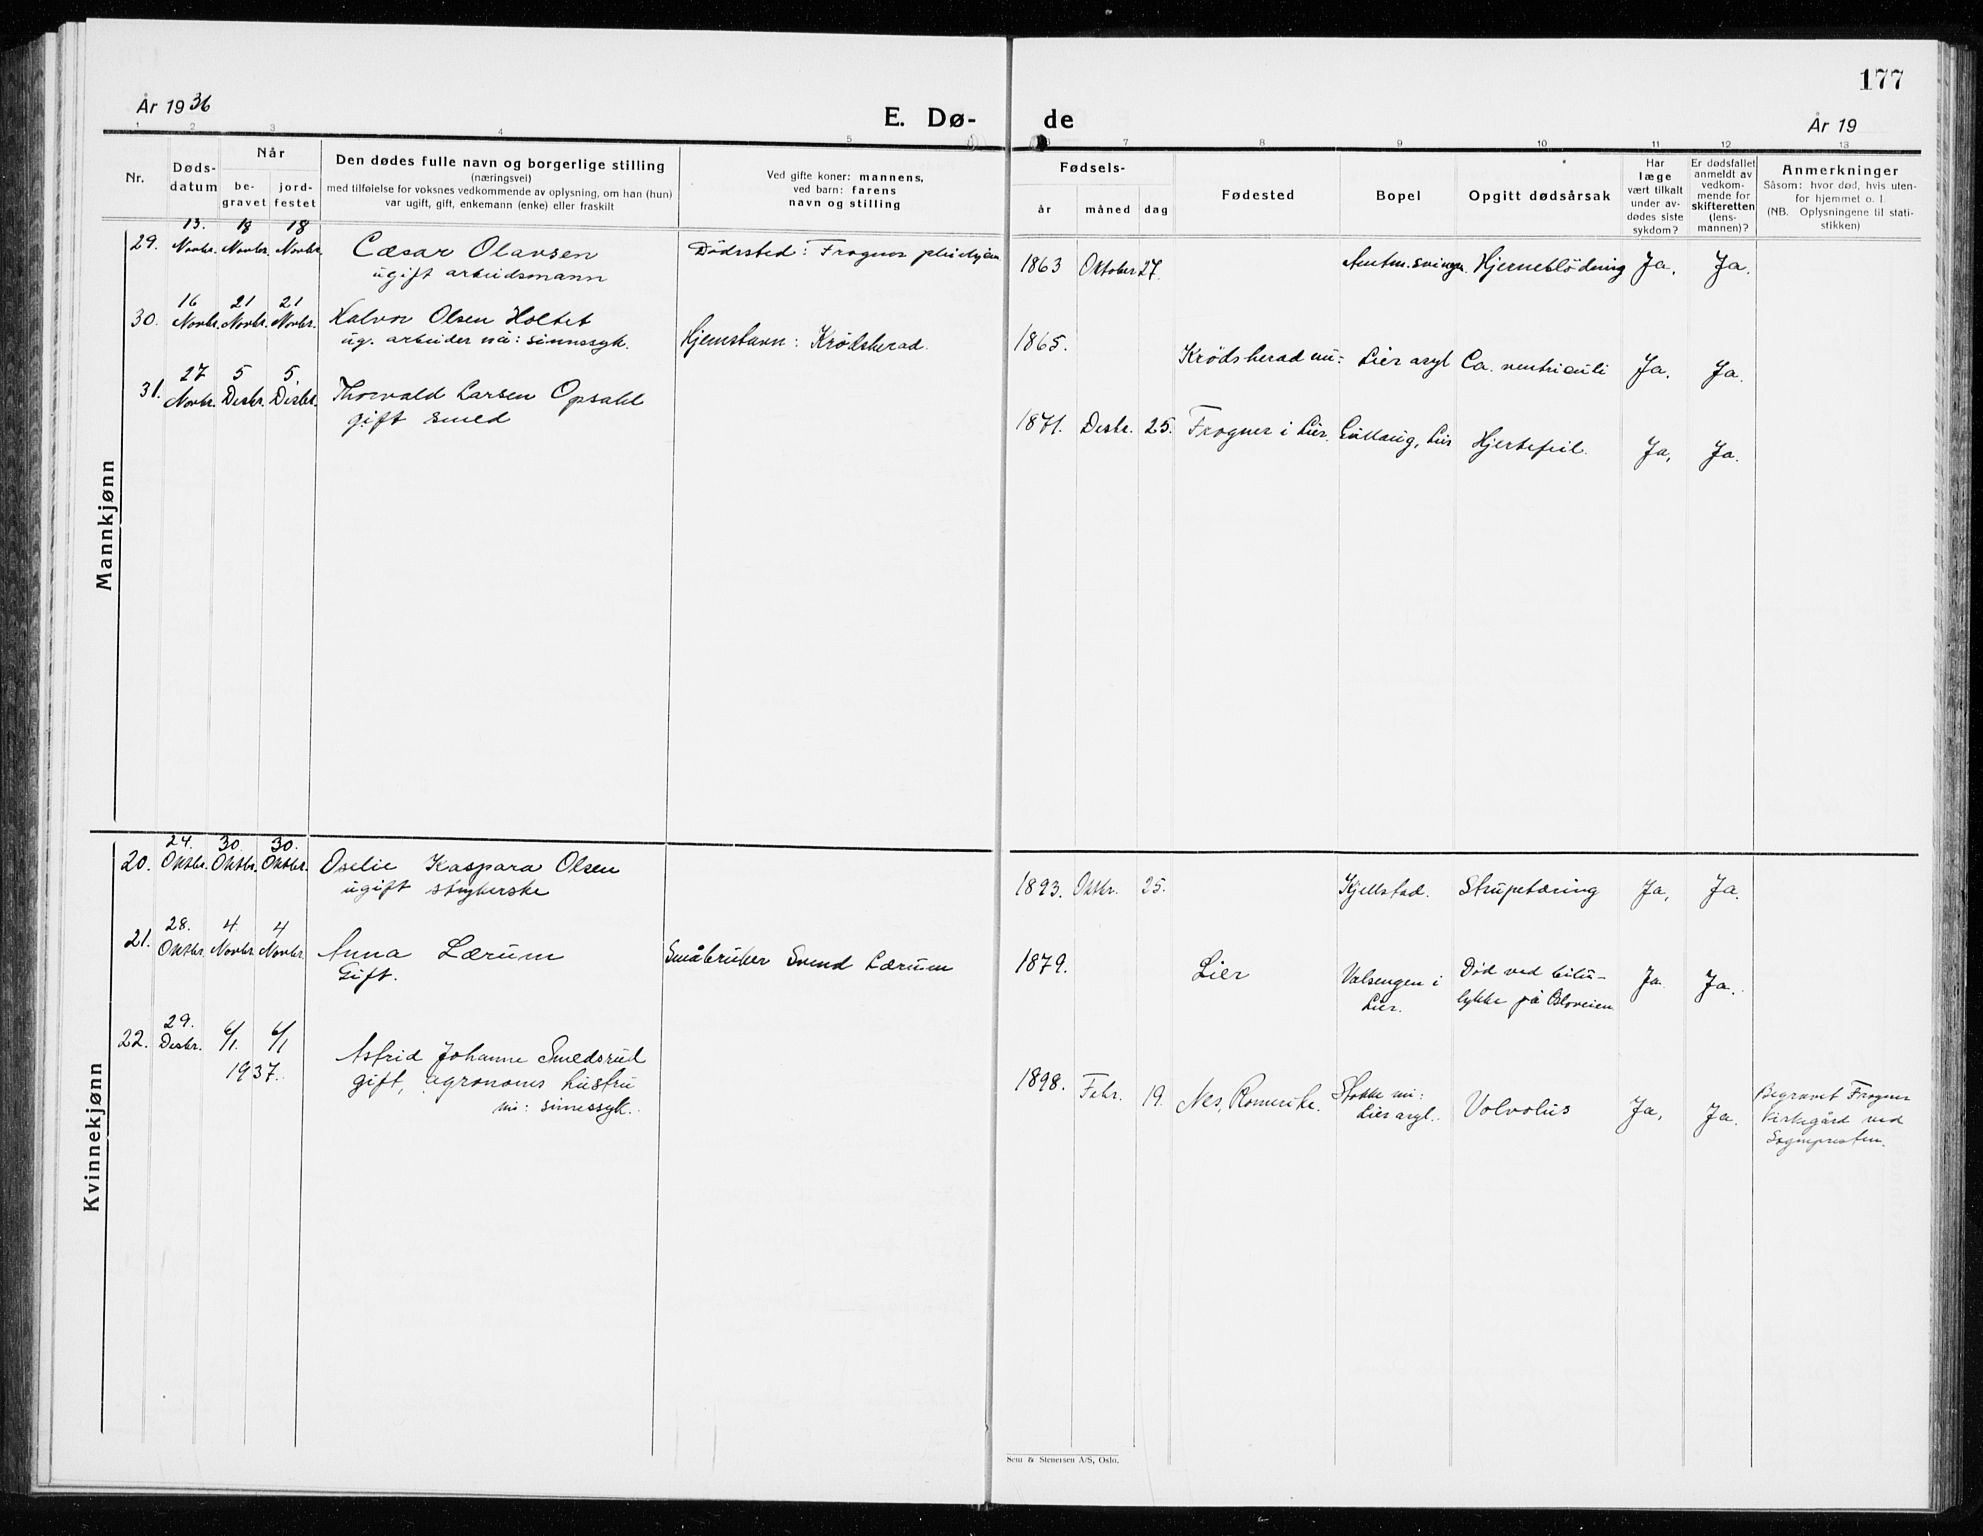 177
År 1936
E. Dø-
de
År 19
1 2 3 4 5 6 7 8 9 10 11 12 13
Nr.
Døds-
datum
Når
be-
gravet
jord-
festet
Den dødes fulle navn og borgerlige stilling
(næringsvei)
med tilføielse for voksnes vedkommende av oplysning, om han (hun)
var ugift, gift, enkemann (enke) eller fraskilt
Ved gifte koner: mannens,
ved barn: farens
navn og stilling
Fødsels-
år måned dag
Fødested
Bopel
Opgitt dødsårsak
Har
læge
vært tilkalt
under av-
dødes siste
sykdom?
Er dødsfallet
anmeldt av
vedkom-
mende for
skifteretten
(lens-
mannen)?
Anmerkninger
Såsom: hvor død, hvis uten-
for hjemmet o. l
(NB. Oplysningene til stati-
stikken)
Mannkjønn
13. 18 18
29. Novbr. Novbr. Novbr. Cæsar Olavsen Dødssted: Frogner pleiehjem 1863 Oktober 27. Hjerneblödning Ja, Ja.
ugift arbeidsmann
16 21 21
30. Novbr. Novbr. Novbr. Halvor Olsen Holtet Hjemstavn: Krødsherad. 1865. Krødsherad nu: Lier asyl Ca. ventriculi Ja, Ja.
ug. arbeider nu: sinnssyk.
27 5 5.
31. Novbr. Desbr. Desbr. Thorvald Larsen Opsahl 1871. Desbr. 25. Frogner i Lier. Gullaug, Lier Hjertefeil. Ja, Ja.
gift smed
Kvinnekjønn
24. 30 30.
20. Oktbr. Oktbr. Oktbr. Oselie Kaspara Olsen 1893. Oktbr. 25. Kjellstad. Strupetæring Ja, Ja.
ugift strykerske
28. 4. 4
21. Oktbr. Novbr. Novbr. Anna Lærum Småbruker Svend Lærum 1879. Lier Valsengen i Død ved bilu- Ja Ja.
Gift. Lier. lykke på Osloveien
29.
22. Desbr. 6/1. 6/1 Astrid Johanne Smedsrud 1898. Febr. 19. Nes, Romerike. Stokke nu: Volvolus Ja, Ja. Begravet Frogner
1937. gift, agronoms hustru Lier asyl. kirkegård ved
nu: sinnessyk. Sognepresten.
Sem & Stenersen A/S, Oslo.